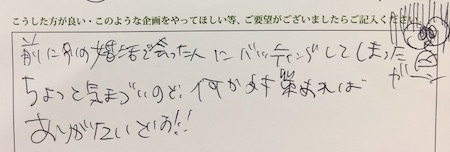 こうした方が良い・このような企画をやってほしい等、ご要望がございましたらご記入ください。
前に別の婚活で会った人にバッティングしてしまった
ガーン
ちょっと気まづいので、何か対策あれば
ありがたいどす!!